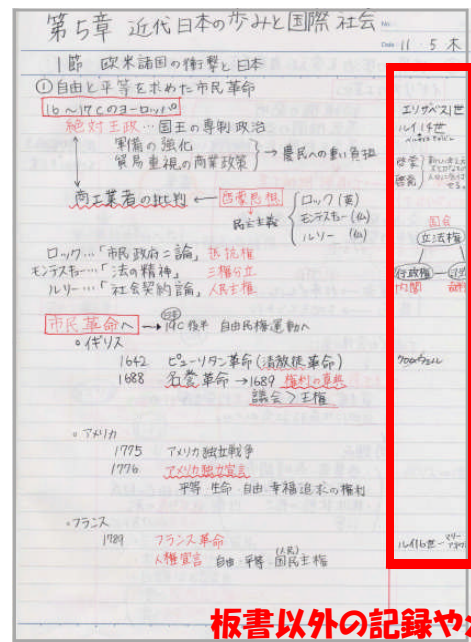 第5章 近代日本の歩みと国際社会
No.
Date 11・5 木
1節 欧米諸国の衝撃と日本
①自由と平等を求めた市民革命
16～17Cのヨーロッパ
絶対王政…国王の専制政治
軍備の強化
貿易重視の商業政策 }→農民への重い負担
商工業者の批判 ← 啓蒙思想 { ロック(英)
民主主義 モンテスキュー(仏)
ルソー(仏)
ロック…「市民政府二論」抵抗権
モンテスキュー…「法の精神」三権分立
ルソー…「社会契約論」人民主権
市民革命へ → 19C後半 自由民権運動へ
○イギリス
1642 ピューリタン革命(清教徒革命)
1688 名誉革命→1689 権利の章典
議会＞王権
○アメリカ
1775 アメリカ独立戦争
1776 アメリカ独立宣言
平等 生命 自由 幸福追求の権利
○フランス
1789 フランス革命
(人民)
人権宣言 自由 平等 国民主権
エリザベス1世
ルイ14世
啓蒙
啓発
国会
立法権
行政権
内閣
クロムウェル
ルイ16世
板書以外の記録や